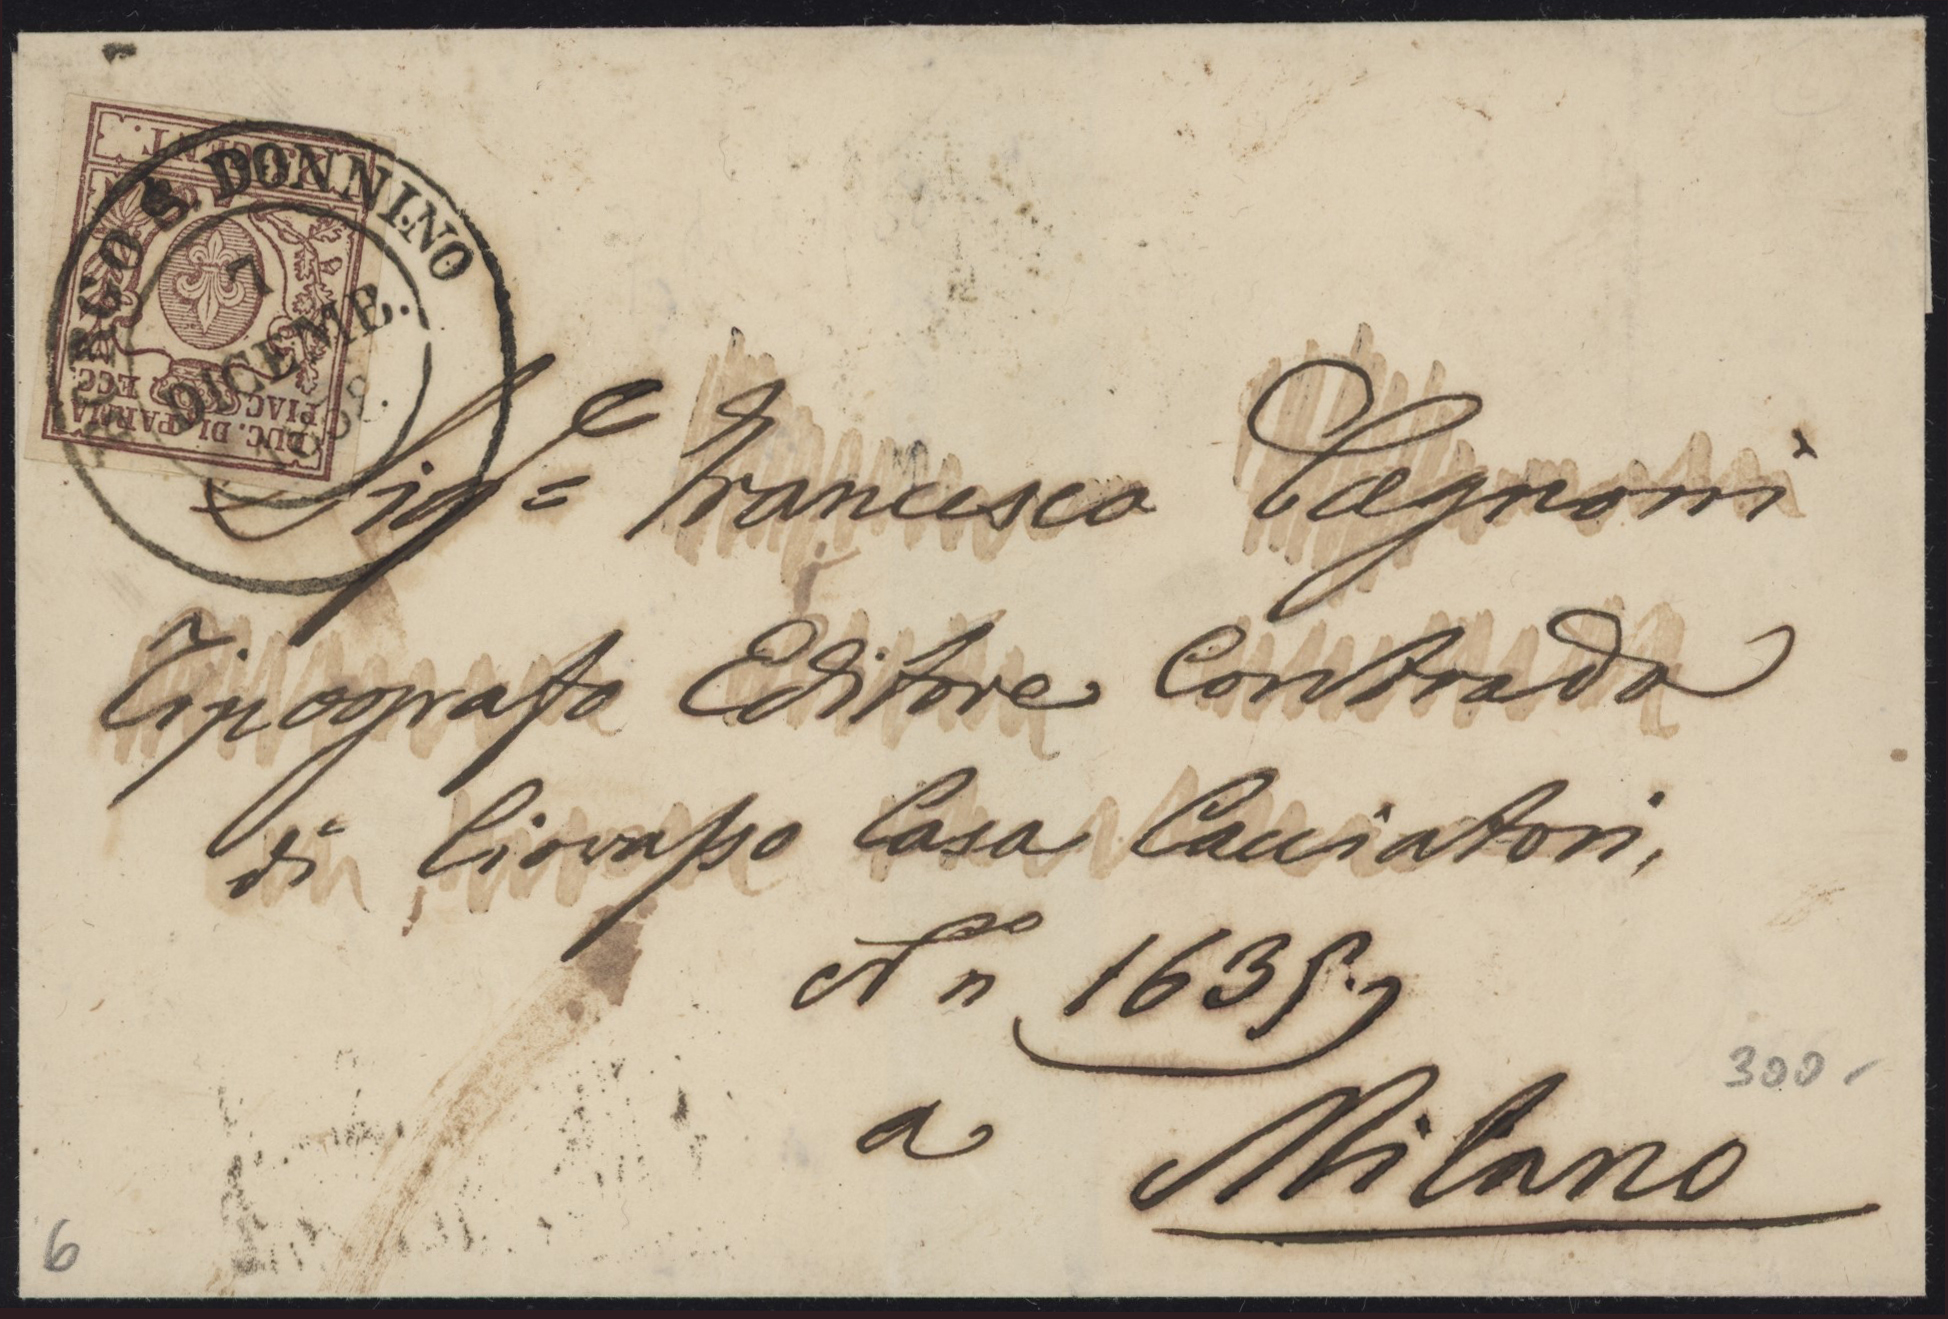 BORGO S. DONNINO
7
DICEME.
1858.
CENT.
DUC. DI PARMA
PIAC. ECC.
Sigr= Francesco Pagnoni
Tipografo Editore Contrada
di Ciovasso Casa Cacciatori,
No n 1635,
a
Milano
300-
6